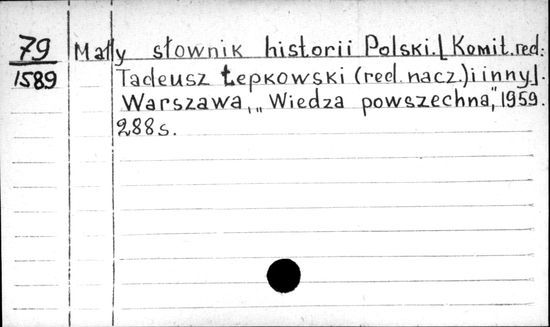 79 Mały słownik historii Polski. [Komit. red:
1589 Tadeusz Łepkowski (red. nacz.) i inny].
Warszawa, „Wiedza powszechna”, 1959.
288 s.